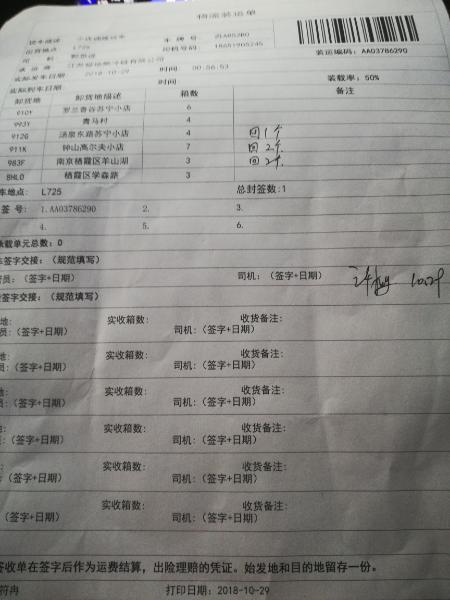 物流装运单
装运编码: AA03786290
出发地点 L725 司机号码
2018-10-29 时间 00:56:53
实际到车日期 时间: 装载率: 50%
卸货地 卸货地描述 箱数 备注
910Y 罗兰香谷苏宁小店 6
993Y 青马村 4
912G 汤泉东路苏宁小店 4 回1个
911K 钟山高尔夫小店 7 回2个
983F 南京栖霞区羊山湖 3 回2个
8HL0 栖霞区学森路 3
车地点: L725 总封签数:1
签 号: 1.AA03786290 2. 3.
4. 5. 6.
承载单元总数: 0
签字交接: (规范填写)
员: (签字+日期) 司机: (签字+日期)
签字交接: (规范填写)
地: 实收箱数: 收货备注:
员: (签字+日期) 司机: (签字+日期)
地: 实收箱数: 收货备注:
员: (签字+日期) 司机: (签字+日期)
地: 实收箱数: 收货备注:
员: (签字+日期) 司机: (签字+日期)
实收箱数: 收货备注:
(签字+日期) 司机: (签字+日期)
实收箱数: 收货备注:
(签字+日期) 司机: (签字+日期)
实收箱数: 收货备注:
(签字+日期) 司机: (签字+日期)
签收单在签字后作为运费结算,出险理赔的凭证。始发地和目的地留存一份。
符冉 打印日期: 2018-10-29